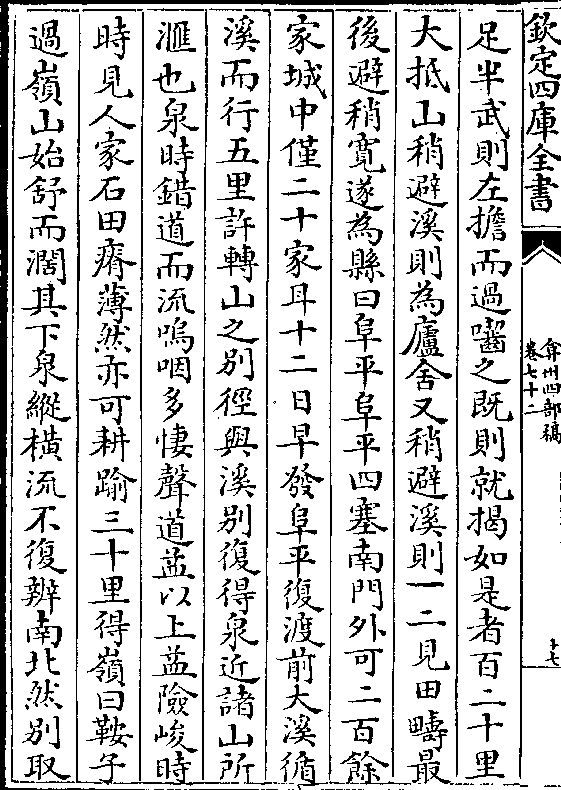 欽定四庫全書
弇州四部稿
卷七十二
十七
足半武則左擔而過嚙之既則就揭如是者百二十里
大抵山稍避溪則為廬舍又稍避溪則一二見田疇最
後避稍寛遂為縣曰阜平阜平四塞南門外可二百餘
家城中僅二十家耳十二日早發阜平復渡前大溪循
溪而行五里許轉山之別徑與溪別復得泉近諸山所
滙也泉時錯道而流嗚咽多悽聲道益以上益險峻時
時見人家石田瘠薄然亦可耕踰三十里得嶺曰鞍子
過嶺山始舒而濶其下泉縱橫流不復辨南北然別取